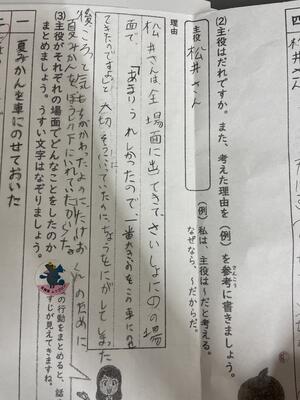 (2) 主役はだれですか。また、考えた理由を(例)を参考に書きましょう。
(例) 私は、主役は〜だと考える。
なぜなら、〜だからだ。
主役
松井さん
理由
松井さんは全場面に出てきて、さいしょに
の場
面で、「あまりうれしかったので、一番大きいのをこの車に
てきたのですよ。」と大切そうに
いたのに、
をにがしてしまった
後ころっと気もちがかわったように、たけお
のために
夏みかんを、ぼうしの下にいれていたからだ。
(3) 主役がそれぞれの場面でどんなことをしたのか
まとめましょう。うすい文字はなぞりましょう。
の行動をまとめると、話
すじが見えてきますね。
一 夏みかんを車にのせておいた
四